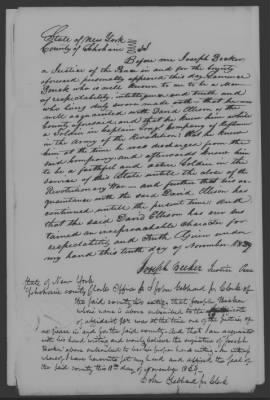 State of New York
County of Schoharie
Before me Joseph Becker
a Justice of the Peace in and for the County
aforesaid personally appeared this day
who is well known to me to be a man
of respectability intelligence and truth and
who being duly sworn made oath that he was
well acquainted with David Ellson of the
County aforesaid and that he knew him while
a Soldier in Captain Company of
in the Army of the Revolution that he knew
him at the time he was discharged from the
said Company and afterwards knew him
to be a faithful and active Soldier in the
service of this State until the close of the
Revolutionary War and further that his ac
quaintance with the said David Ellson has
continued until the present time And
that the said David Ellson has ever sus
tained an irreproachable character for
respectability and truth Given under
my hand this tenth day of November 1829
Joseph Becker Justice Peace
State of New York
Schoharie county Clerks Office I John Gebhard Jr Clerk of
the said county do certify that Joseph Becker
whose name is above subscribed to the
of affidavit for was at the time one of the Justices of
the peace in and for the said county, And that I am acquainted
with his hand writing and verily believe the signature of Joseph
Becker above subscribed to be his proper hand writing. In testimony
whereof I have hereunto set my hand and affixed the seal of
the said county the day of November 1829
John Gebhard Jr Clerk